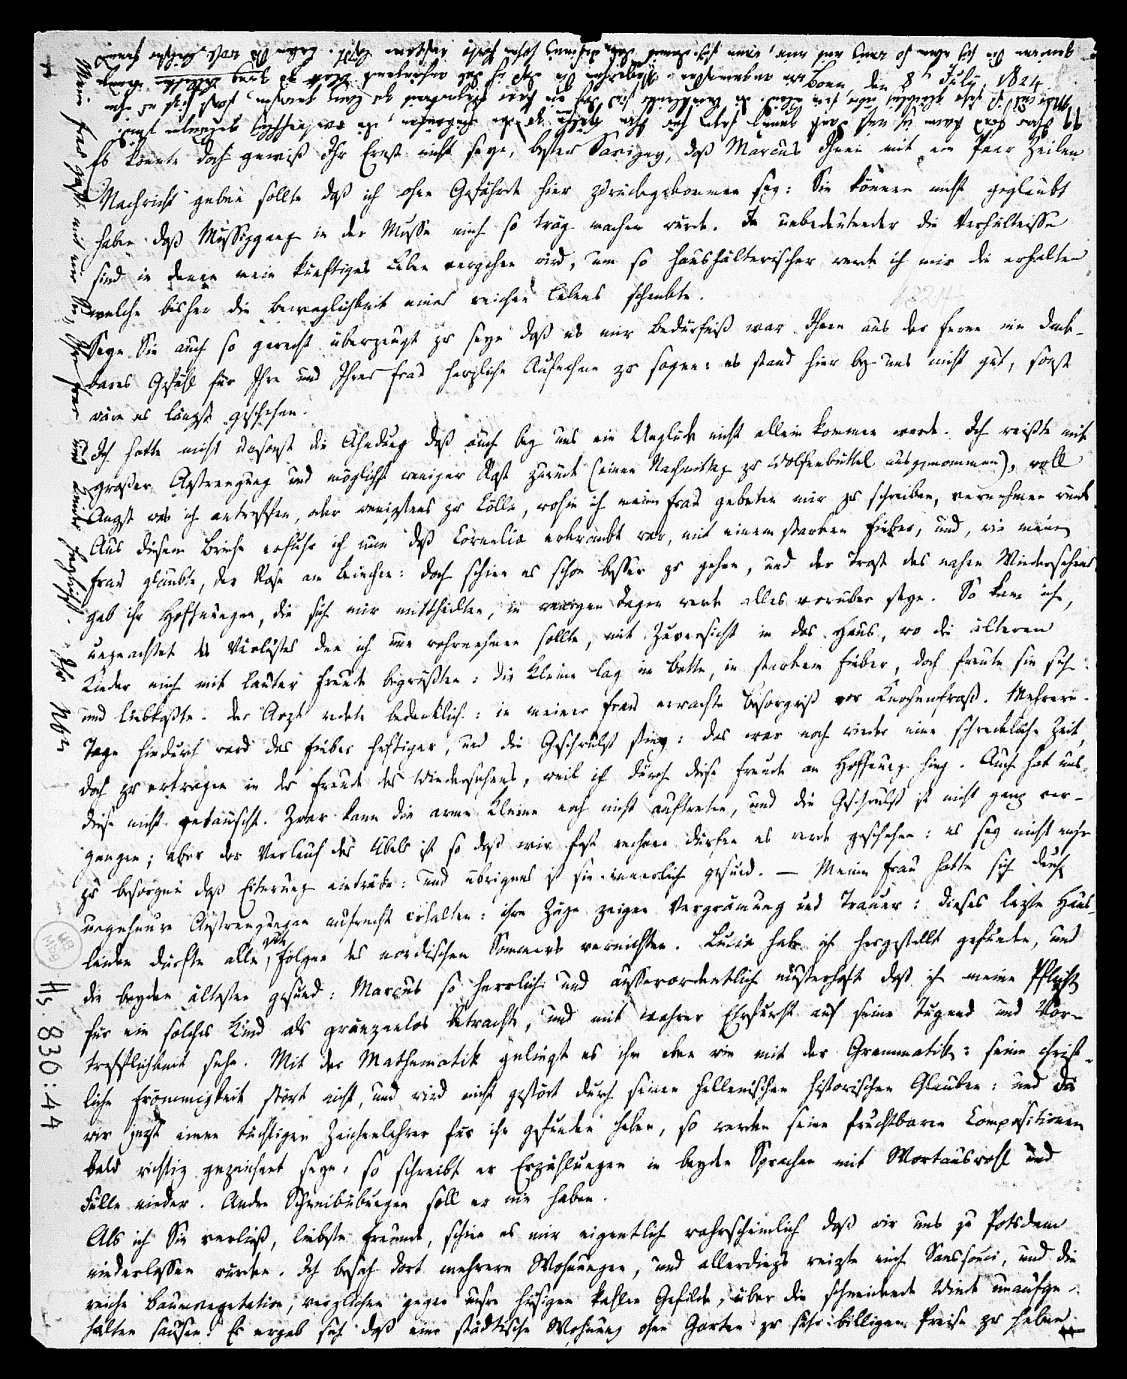 Bonn, den 8t July, 1824
Es konnte doch gewiß Ihr Ernst nicht seyn, bester Savigny, daß Marcus Ihnen mit ein Paar Zeilen
Nachricht geben sollte daß ich ohne Gefährde hier zurückgekommen sey: Sie können nicht geglaubt
haben daß Müssiggang in der Muße mich so träg machen würde. Je unbedeutender die Verhältnisse
sind in denen mein künftiges Leben vergehen wird, um so haushälterischer werde ich mir die erhalten
welche bisher die Beweglichkeit eines reichen Lebens schenkte.
Seyn Sie auch so gerecht überzeugt zu seyn daß es mir Bedürfniß war Ihnen aus der Ferne ein dank-
bares Gefühl für Ihre und Ihrer Frau herzliche Aufnahme zu sagen: es stand hier bey uns nicht gut, sonst
wäre es längst geschehen.
Ich hatte nicht umsonst die Ahndung daß auch bey uns ein Unglück nicht allein kommen werde. Ich reißte mit
großer Anstrengung und möglichst weniger Rast zurück (einen Nachmittag zu Wolfenbüttel ausgenommen), voll
Angst was ich antreffen, oder wenigstens zu Cölln, wohin ich meine Frau gebeten mir zu schreiben, vernehmen würde
Aus diesem Briefe erfuhr ich nun daß Cornelia erkrankt war, mit einem starken Fieber, und, wie meine
Frau glaubte, der Rose am Beinchen: doch schien es schon besser zu gehen, und der Trost des nahen Wiedersehens
gab ihr Hoffnungen, die sich mir mittheilten, in wenigen Tagen werde alles vorüber seyn. So kam ich,
ungeachtet des Verlustes den ich nun wahrnehmen sollte, mit Zuversicht in das Haus, wo die älteren
Kinder mich mit lauter Freude begrüßten: die Kleine lag im Bette, in starkem Fieber, doch freute sie sich
und liebkoßte. Der Arzt redete bedenklich: in meiner Frau erwachte Besorgniß vor Knochenfraß. Mehrere
Tage hindurch ward das Fieber heftiger, und die Geschwulst stieg: das war noch wieder eine schreckliche Zeit,
doch zu ertragen in der Freude des Wiedersehens, weil ich durch diese Freude an Hoffnung hing. Auch hat uns
diese nicht getäuscht. Zwar kann die arme Kleine noch nicht auftreten, und die Geschwulst ist nicht ganz ver-
gangen; aber der Verlauf des Übels ist so daß wir fest rechnen dürfen es werde geschehen: es sey nicht mehr
zu besorgen daß Eiterung eintrete: und übrigens ist sie innerlich gesund. — Meine Frau hatte sich durch
ungeheure Anstrengungen aufrecht erhalten: ihre Züge zeigen Vergrämung und Trauer: dieses lezte Haus-
leiden dürfte alle gute Folgen des nordischen Sommers vernichten. Lucia habe ich hergestellt gefunden, und
die beyden ältesten gesund: Marcus so herrlich und ausserordentlich musterhaft daß ich meine Pflicht
für ein solches Kind als gränzenlos betrachte, und mit wahrer Ehrfurcht auf seine Tugend und Vor-
trefflichkeit sehe. Mit der Mathematik gelingt es ihm eben wie mit der Grammatik: seine christ-
liche Frömmigkeit stört nicht, und wird nicht gestört durch seinen hellenischen historischen Glauben: und da
wir jezt einen tüchtigen Zeichenlehrer für ihn gefunden haben, so werden seine fruchtbaren Compositionen
bald richtig gezeichnet seyn: so schreibt er Erzählungen in beyden Sprachen mit Wortauswahl und
Fülle nieder. Andre Schreibübungen soll er nie haben.
Als ich Sie verließ, liebster Freund, schien es mir eigentlich wahrscheinlich daß wir uns zu Potsdam
niederlassen würden. Ich besah dort mehrere Wohnungen, und allerdings reizte mich Sanssouci, und die
reiche Baumvegetation, verglichen gegen unsre hiesigen kahlen Gefilde, über die schneidende Winde unaufge-
halten sausen. Es ergab sich daß eine städtische Wohnung ohne Garten zu sehr billigem Preise zu haben
Mein Frau grüßt mit mir Sie, Ihre Frau und Kinder herzlichst. Ihr Nbr
Hs. 836:44